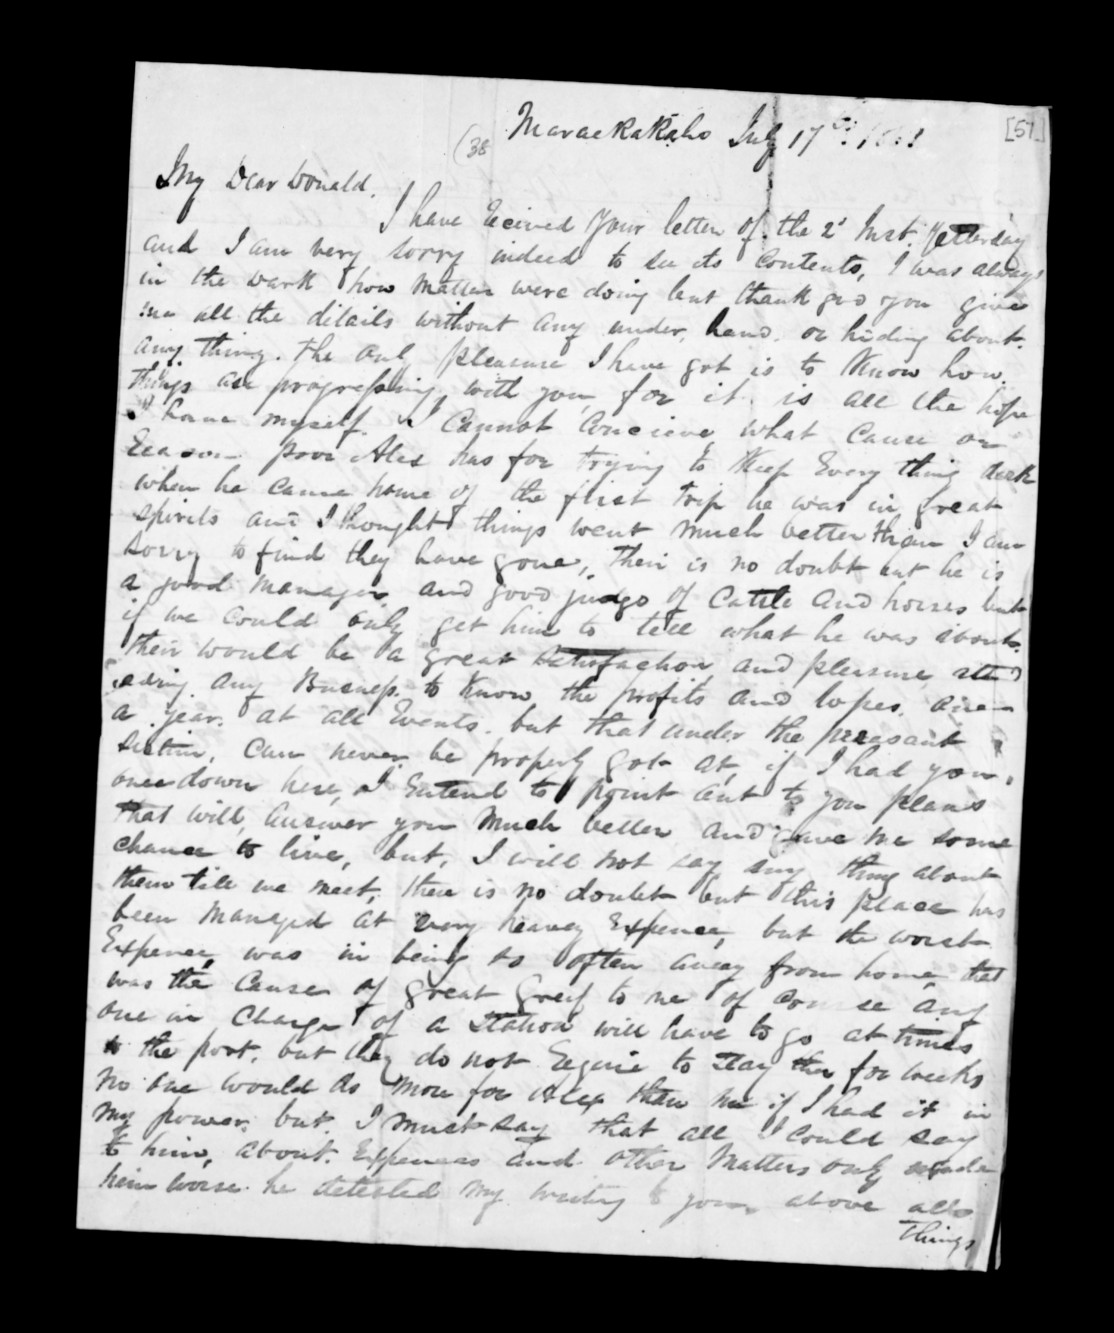 [57]
(38
Maraekakaho July 17th
My Dear Donald.
I have Recived your letter of the 2d Inst. Yesterday
and I am very sorry indeed to see its Contents, I was always
in the dark how matters were doing but thank god you give
me all the ditails without any under, hand. or hiding about.
any thing. the only pleasure I have got is to Know how
things are progressing with you, for it is all the hope
I have myself. I Cannot Concieve what Cause or
Reason poor Alex has for trying to Keep Every thing dark
when he came home of the first trip he was in great
spirits and I thought things went much better than I am
sorry to find they have gone, their is no doubt but he is
a good manager and good judge of Cattle and horses but
if we could only get him to tell what he was about.
their would be a great Satisfaction and pleasure
any Business. to Know the profits and losses
a year. at all Events. but that under the preasant
sistim, can never be properly got at, if I had you
once down here, I Entend to point out to you plans
that will, answer you much better and give me some
chance to live, but, I will not say any thing about
them till we meet, there is no doubt but this place has
been managed at very heavey Expence, but the worst
Expence, was in being so often away from home, that
was the Cause of great Greif to me of course any
one in Charge of a Station will have to go at times
to the port. but they do not Require to stay for weeks
No one would do more for Alex than me if I had it in
my power. but I must say that all I could say
to him, about. Expences and other Matters only made
him worse. he detested my writing to you above all
things